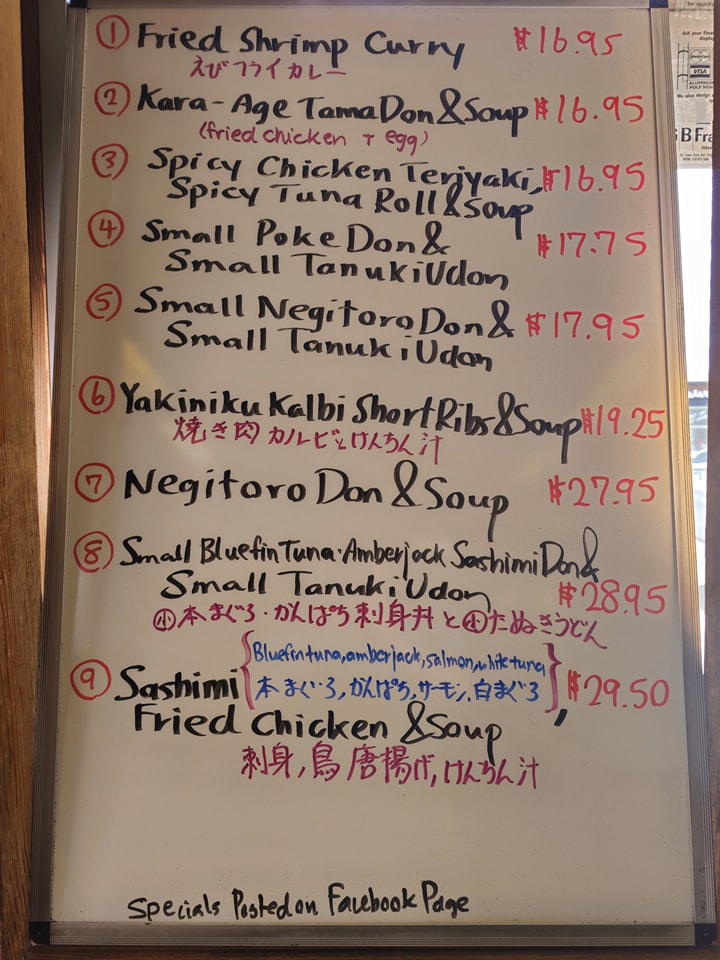 ① Fried Shrimp Curry $16.95
えびフライカレー
② Kara-Age TamaDon & Soup $16.95
(fried chicken + egg)
③ Spicy Chicken Teriyaki, $16.95
Spicy Tuna Roll & Soup
④ Small Poke Don & $17.75
Small Tanuki Udon
⑤ Small Negitoro Don & $17.95
Small Tanuki Udon
⑥ Yakiniku Kalbi Short Ribs & Soup $19.25
焼き肉カルビとけんちん汁
⑦ Negitoro Don & Soup $27.95
⑧ Small Bluefin Tuna·Amberjack Sashimi Don &
Small Tanuki Udon $28.95
㊥本まぐろ・かんぱち刺身丼と㊥たぬきうどん
⑨ Sashimi { Bluefin tuna, amberjack, salmon, white tuna
本まぐろ, かんぱち, サーモン, 白まぐろ }, $29.50
Fried Chicken & Soup
刺身, 鳥唐揚げ, けんちん汁
Specials Posted on Facebook Page
VISA